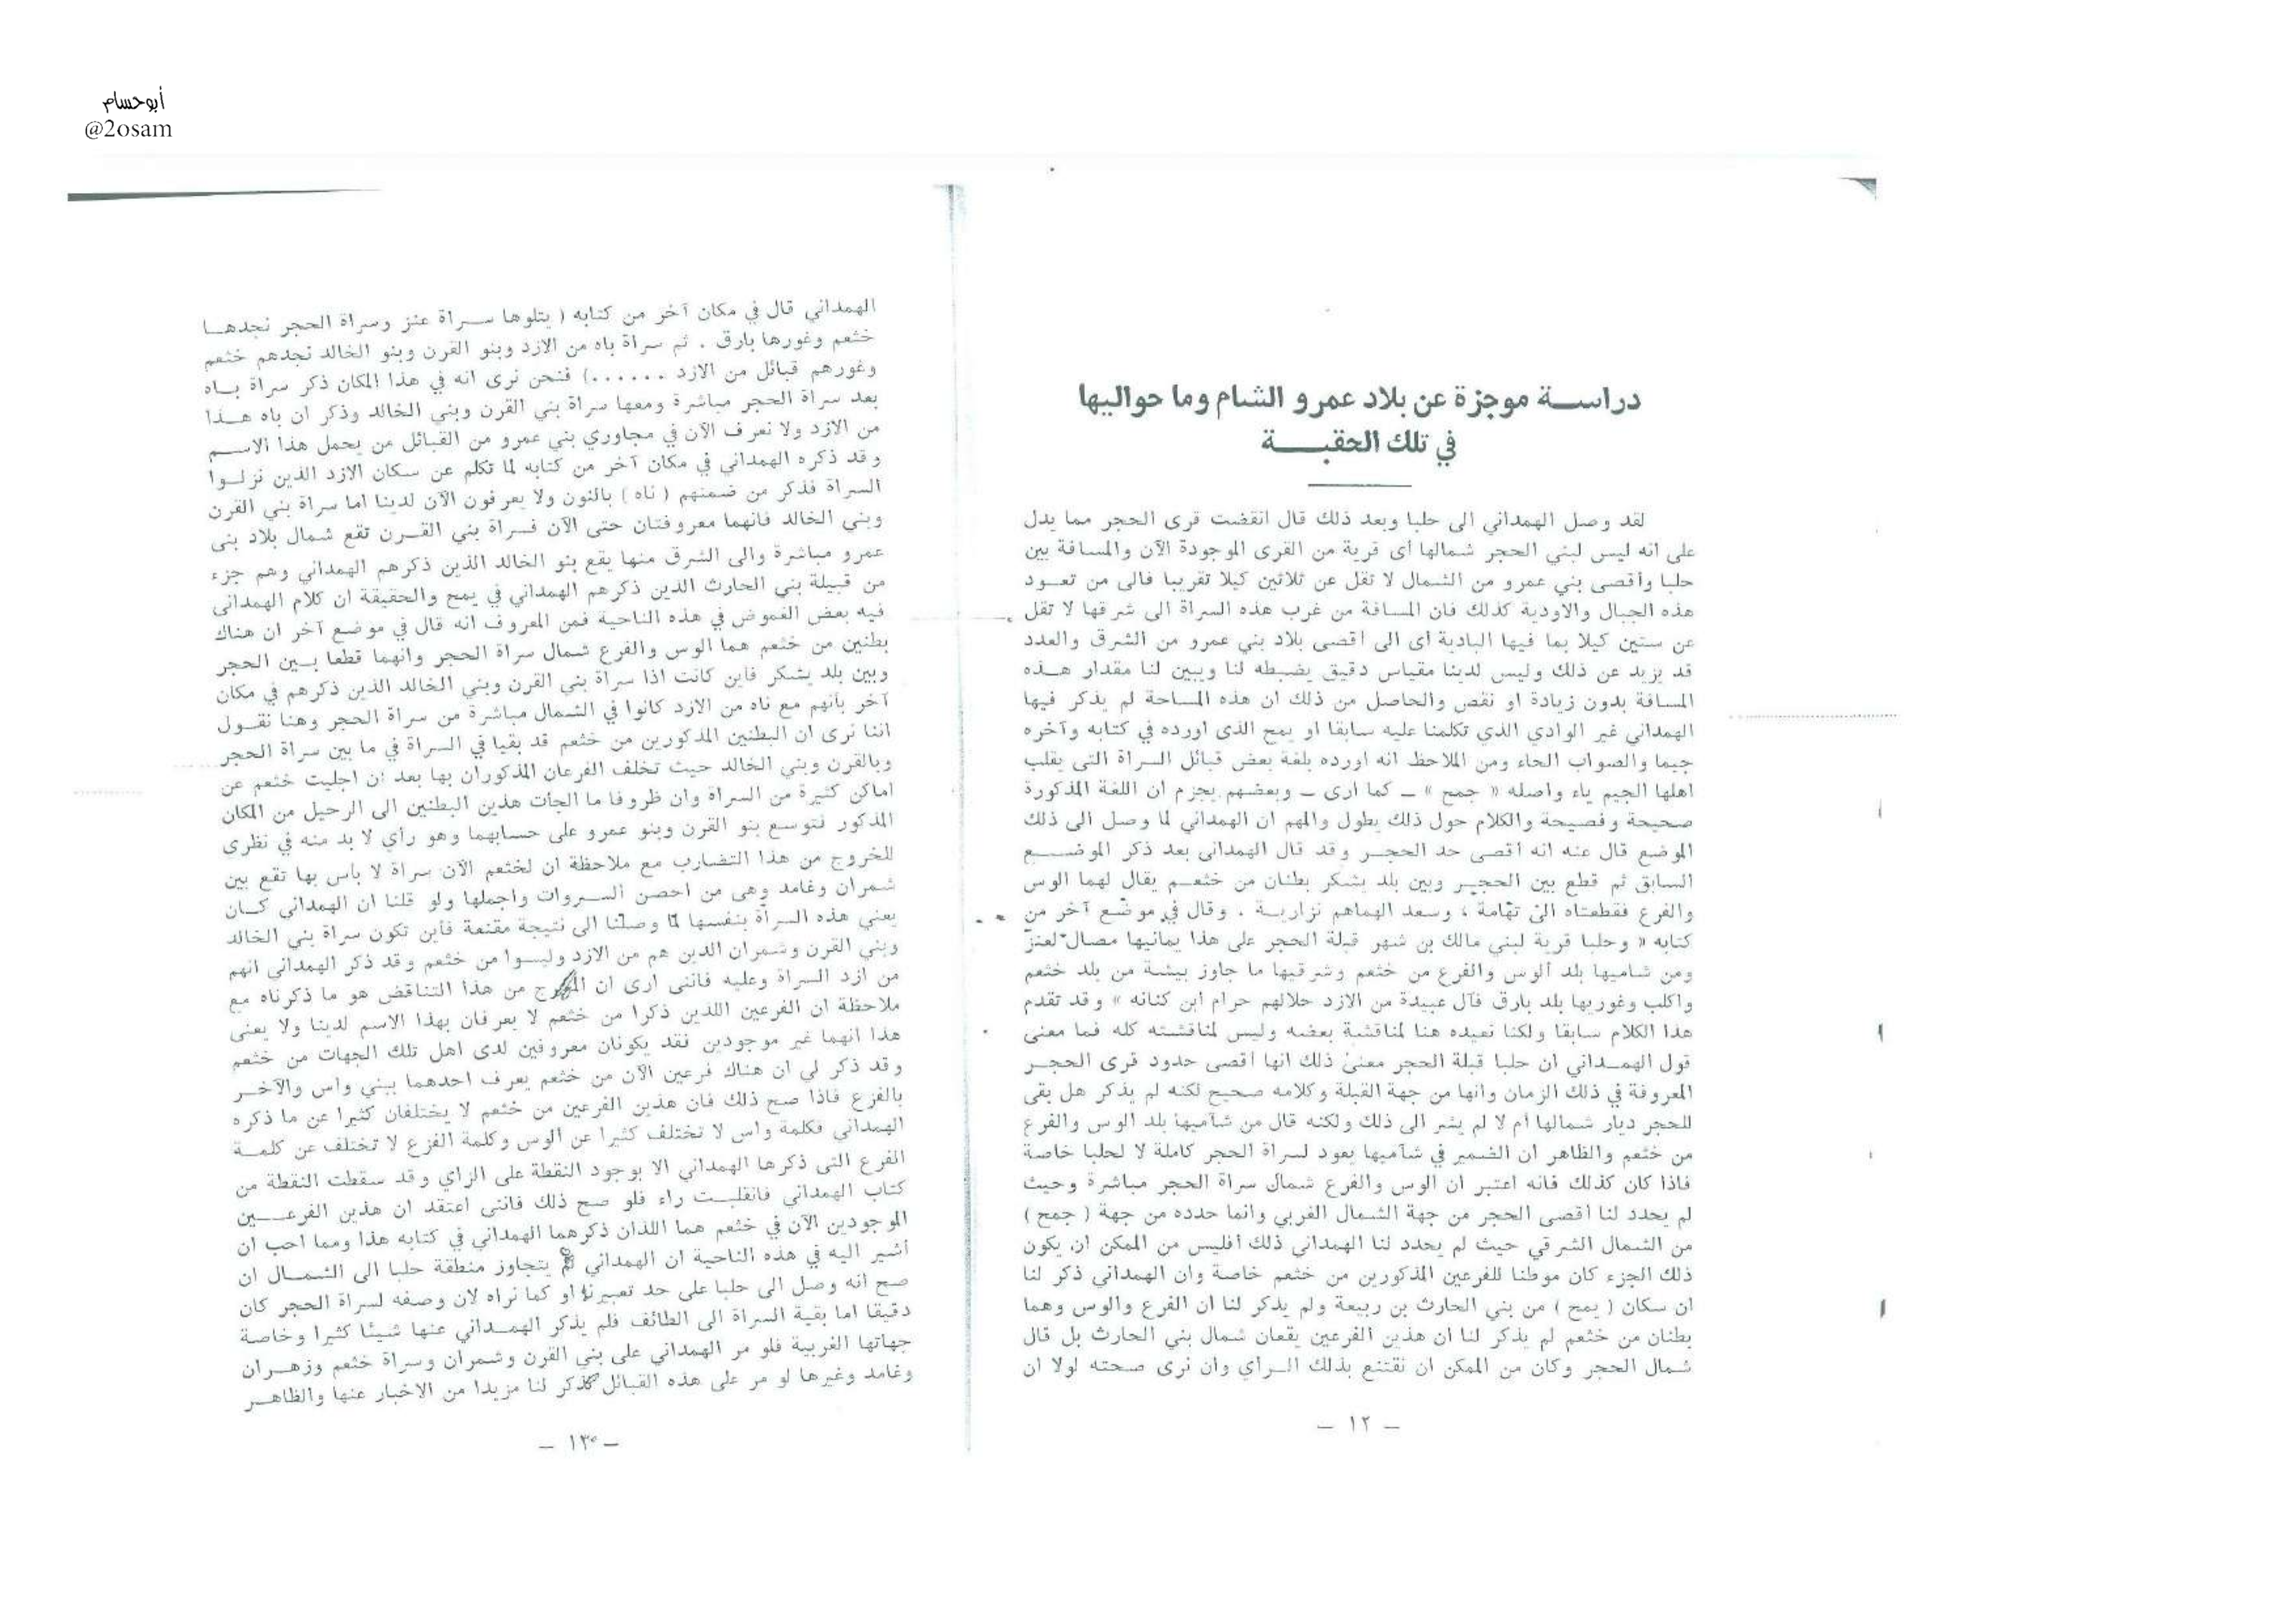 أبوحسام
@2osam
دراســة موجزة عن بلاد عمرو الشام وما حواليها
في تلك الحقبـــة
لقد وصل الهمداني الى حلبا وبعد ذلك قال انقضت قرى الحجر مما يدل
على انه ليس لبني الحجر شمالها أى قرية من القرى الموجودة الآن والمسافة بين
حلبا وأقصى بني عمرو من الشمال لا تقل عن ثلاثين كيلا تقريبا فالى من تعـــود
هذه الجبال والاودية كذلك فان المسافة من غرب هذه السراة الى شرقها لا تقل
عن ستين كيلا بما فيها البادية أى الى أقصى بلاد بني عمرو من الشرق والعدد
قد يزيد عن ذلك وليس لدينا مقياس دقيق يضبطه لنا ويبين لنا مقدار هــذه
المسافة بدون زيادة او نقص والحاصل من ذلك ان هذه المساحة لم يذكر فيها
الهمداني غير الوادي الذي تكلمنا عليه سابقا او يمح الذى اورده في كتابه وآخره
جيما والصواب الحاء ومن الملاحظ انه اورده بلغة بعض قبائل السراة التى يقلب
اهلها الجيم ياء واصله « جمح » ــ كما ارى ــ وبعضهم يجزم ان اللغة المذكورة
صحيحة وفصيحة والكلام حول ذلك يطول والمهم ان الهمداني لما وصل الى ذلك
الموضع قال عنه انه أقصى حد الحجــر وقد قال الهمدانى بعد ذكر الموضــــع
السابق ثم قطع بين الحجــر وبين بلد يشكر بطنان من خثعــم يقال لهما الوس
والفرع فقطعتاه الى تهامة ، وسعد الهماهم نزاريــة . وقال في موضع آخر من
كتابه « وحلبا قرية لبني مالك بن شهر قبلة الحجر على هذا يمانيها مصال لعنز
ومن شاميها بلد الوس والفرع من خثعم وشرقيها ما جاوز بيشة من بلد خثعم
واكلب وغوريها بلد بارق فآل عبيدة من الازد حلالهم حرام ابن كنانه » وقد تقدم
هذا الكلام سابقا ولكنا نعيده هنا لمناقشة بعضه وليس لمناقشته كله فما معنى
قول الهمــداني ان حلبا قبلة الحجر معنى ذلك انها أقصى حدود قرى الحجــر
المعروفة في ذلك الزمان وانها من جهة القبلة وكلامه صحيح لكنه لم يذكر هل بقى
للحجر ديار شمالها أم لا لم يشر الى ذلك ولكنه قال من شآميها بلد الوس والفرع
من خثعم والظاهر ان الضمير في شآميها يعود لسراة الحجر كاملة لا لحلبا خاصة
فاذا كان كذلك فانه اعتبر ان الوس والفرع شمال سراة الحجر مباشرة وحيث
لم يحدد لنا أقصى الحجر من جهة الشمال الغربي وانما حدده من جهة ( جمح )
من الشمال الشرقي حيث لم يحدد لنا الهمداني ذلك أفليس من الممكن ان يكون
ذلك الجزء كان موطنا للفرعين المذكورين من خثعم خاصة وان الهمداني ذكر لنا
ان سكان ( يمح ) من بني الحارث بن ربيعة ولم يذكر لنا ان الفرع والوس وهما
بطنان من خثعم لم يذكر لنا ان هذين الفرعين يقعان شمال بني الحارث بل قال
شمال الحجر وكان من الممكن ان نقتنع بذلك الـرأي وان نرى صحته لولا ان
ــ ١٢ ــ
الهمداني قال في مكان آخر من كتابه ( يتلوها ســراة عنز وسراة الحجر نجدهــا
خثعم وغورها بارق . ثم سراة باه من الازد وبنو القرن وبنو الخالد نجدهم خثعم
وغورهم قبائل من الازد . . . . . .) فنحن نرى انه في هذا المكان ذكر سراة بــاه
بعد سراة الحجر مباشرة ومعها سراة بني القرن وبني الخالد وذكر ان باه هــذا
من الازد ولا نعرف الآن في مجاوري بني عمرو من القبائل من يحمل هذا الاســم
وقد ذكره الهمداني في مكان آخر من كتابه لما تكلم عن سكان الازد الذين نزلــوا
السراة فذكر من ضمنهم ( ناه ) بالنون ولا يعرفون الآن لدينا اما سراة بني القرن
وبني الخالد فانهما معروفتان حتى الآن فسراة بني القــرن تقع شمال بلاد بنى
عمرو مباشرة والى الشرق منها يقع بنو الخالد الذين ذكرهم الهمداني وهم جزء
من قبيلة بني الحارث الذين ذكرهم الهمداني في يمح والحقيقة ان كلام الهمدانى
فيه بعض الغموض في هذه الناحية فمن المعروف انه قال في موضع آخر ان هناك
بطنين من خثعم هما الوس والفرع شمال سراة الحجر وانهما قطعا بــين الحجر
وبين بلد يشكر فاين كانت اذا سراة بني القرن وبني الخالد الذين ذكرهم في مكان
آخر بأنهم مع ناه من الازد كانوا في الشمال مباشرة من سراة الحجر وهنا نقــول
اننا نرى ان البطنين المذكورين من خثعم قد بقيا في السراة في ما بين سراة الحجر
وبالقرن وبني الخالد حيث تخلف الفرعان المذكوران بها بعد ان اجليت خثعم عن
اماكن كثيرة من السراة وان ظروفا ما الجأت هذين البطنين الى الرحيل من المكان
المذكور فتوسع بنو القرن وبنو عمرو على حسابهما وهو رأي لا بد منه في نظرى
للخروج من هذا التضارب مع ملاحظة ان لخثعم الآن سراة لا بأس بها تقع بين
شمران وغامد وهى من احصن الســروات واجملها ولو قلنا ان الهمداني كــان
يعني هذه السراة بنفسها لما وصلنا الى نتيجة مقنعة فأين تكون سراة بني الخالد
وبني القرن وشمران الذين هم من الازد وليسوا من خثعم وقد ذكر الهمداني انهم
من ازد السراة وعليه فاننى ارى ان المخرج من هذا التناقض هو ما ذكرناه مع
ملاحظة ان الفرعين اللذين ذكرا من خثعم لا يعرفان بهذا الاسم لدينا ولا يعنى
هذا انهما غير موجودين فقد يكونان معروفين لدى اهل تلك الجهات من خثعم
وقد ذكر لي ان هناك فرعين الآن من خثعم يعرف احدهما ببني واس والآخــر
بالفزع فاذا صح ذلك فان هذين الفرعين من خثعم لا يختلفان كثيرا عن ما ذكره
الهمداني فكلمة واس لا تختلف كثيرا عن الوس وكلمة الفزع لا تختلف عن كلمــة
الفرع التى ذكرها الهمداني الا بوجود النقطة على الزاي وقد سقطت النقطة من
كتاب الهمداني فانقلبــت راء فلو صح ذلك فانني اعتقد ان هذين الفرعــــين
الموجودين الآن في خثعم هما اللذان ذكرهما الهمداني في كتابه هذا ومما احب ان
أشير اليه في هذه الناحية ان الهمداني لم يتجاوز منطقة حلبا الى الشمــال ان
صح انه وصل الى حلبا على حد تعبيرنا او كما نراه لان وصفه لسراة الحجر كان
دقيقا اما بقية السراة الى الطائف فلم يذكر الهمــداني عنها شيئا كثيرا وخاصة
جهاتها الغربية فلو مر الهمداني على بني القرن وشمران وسراة خثعم وزهــران
وغامد وغيرها لو مر على هذه القبائل لذكر لنا مزيدا من الاخبار عنها والظاهــر
ــ ١٣ ــ